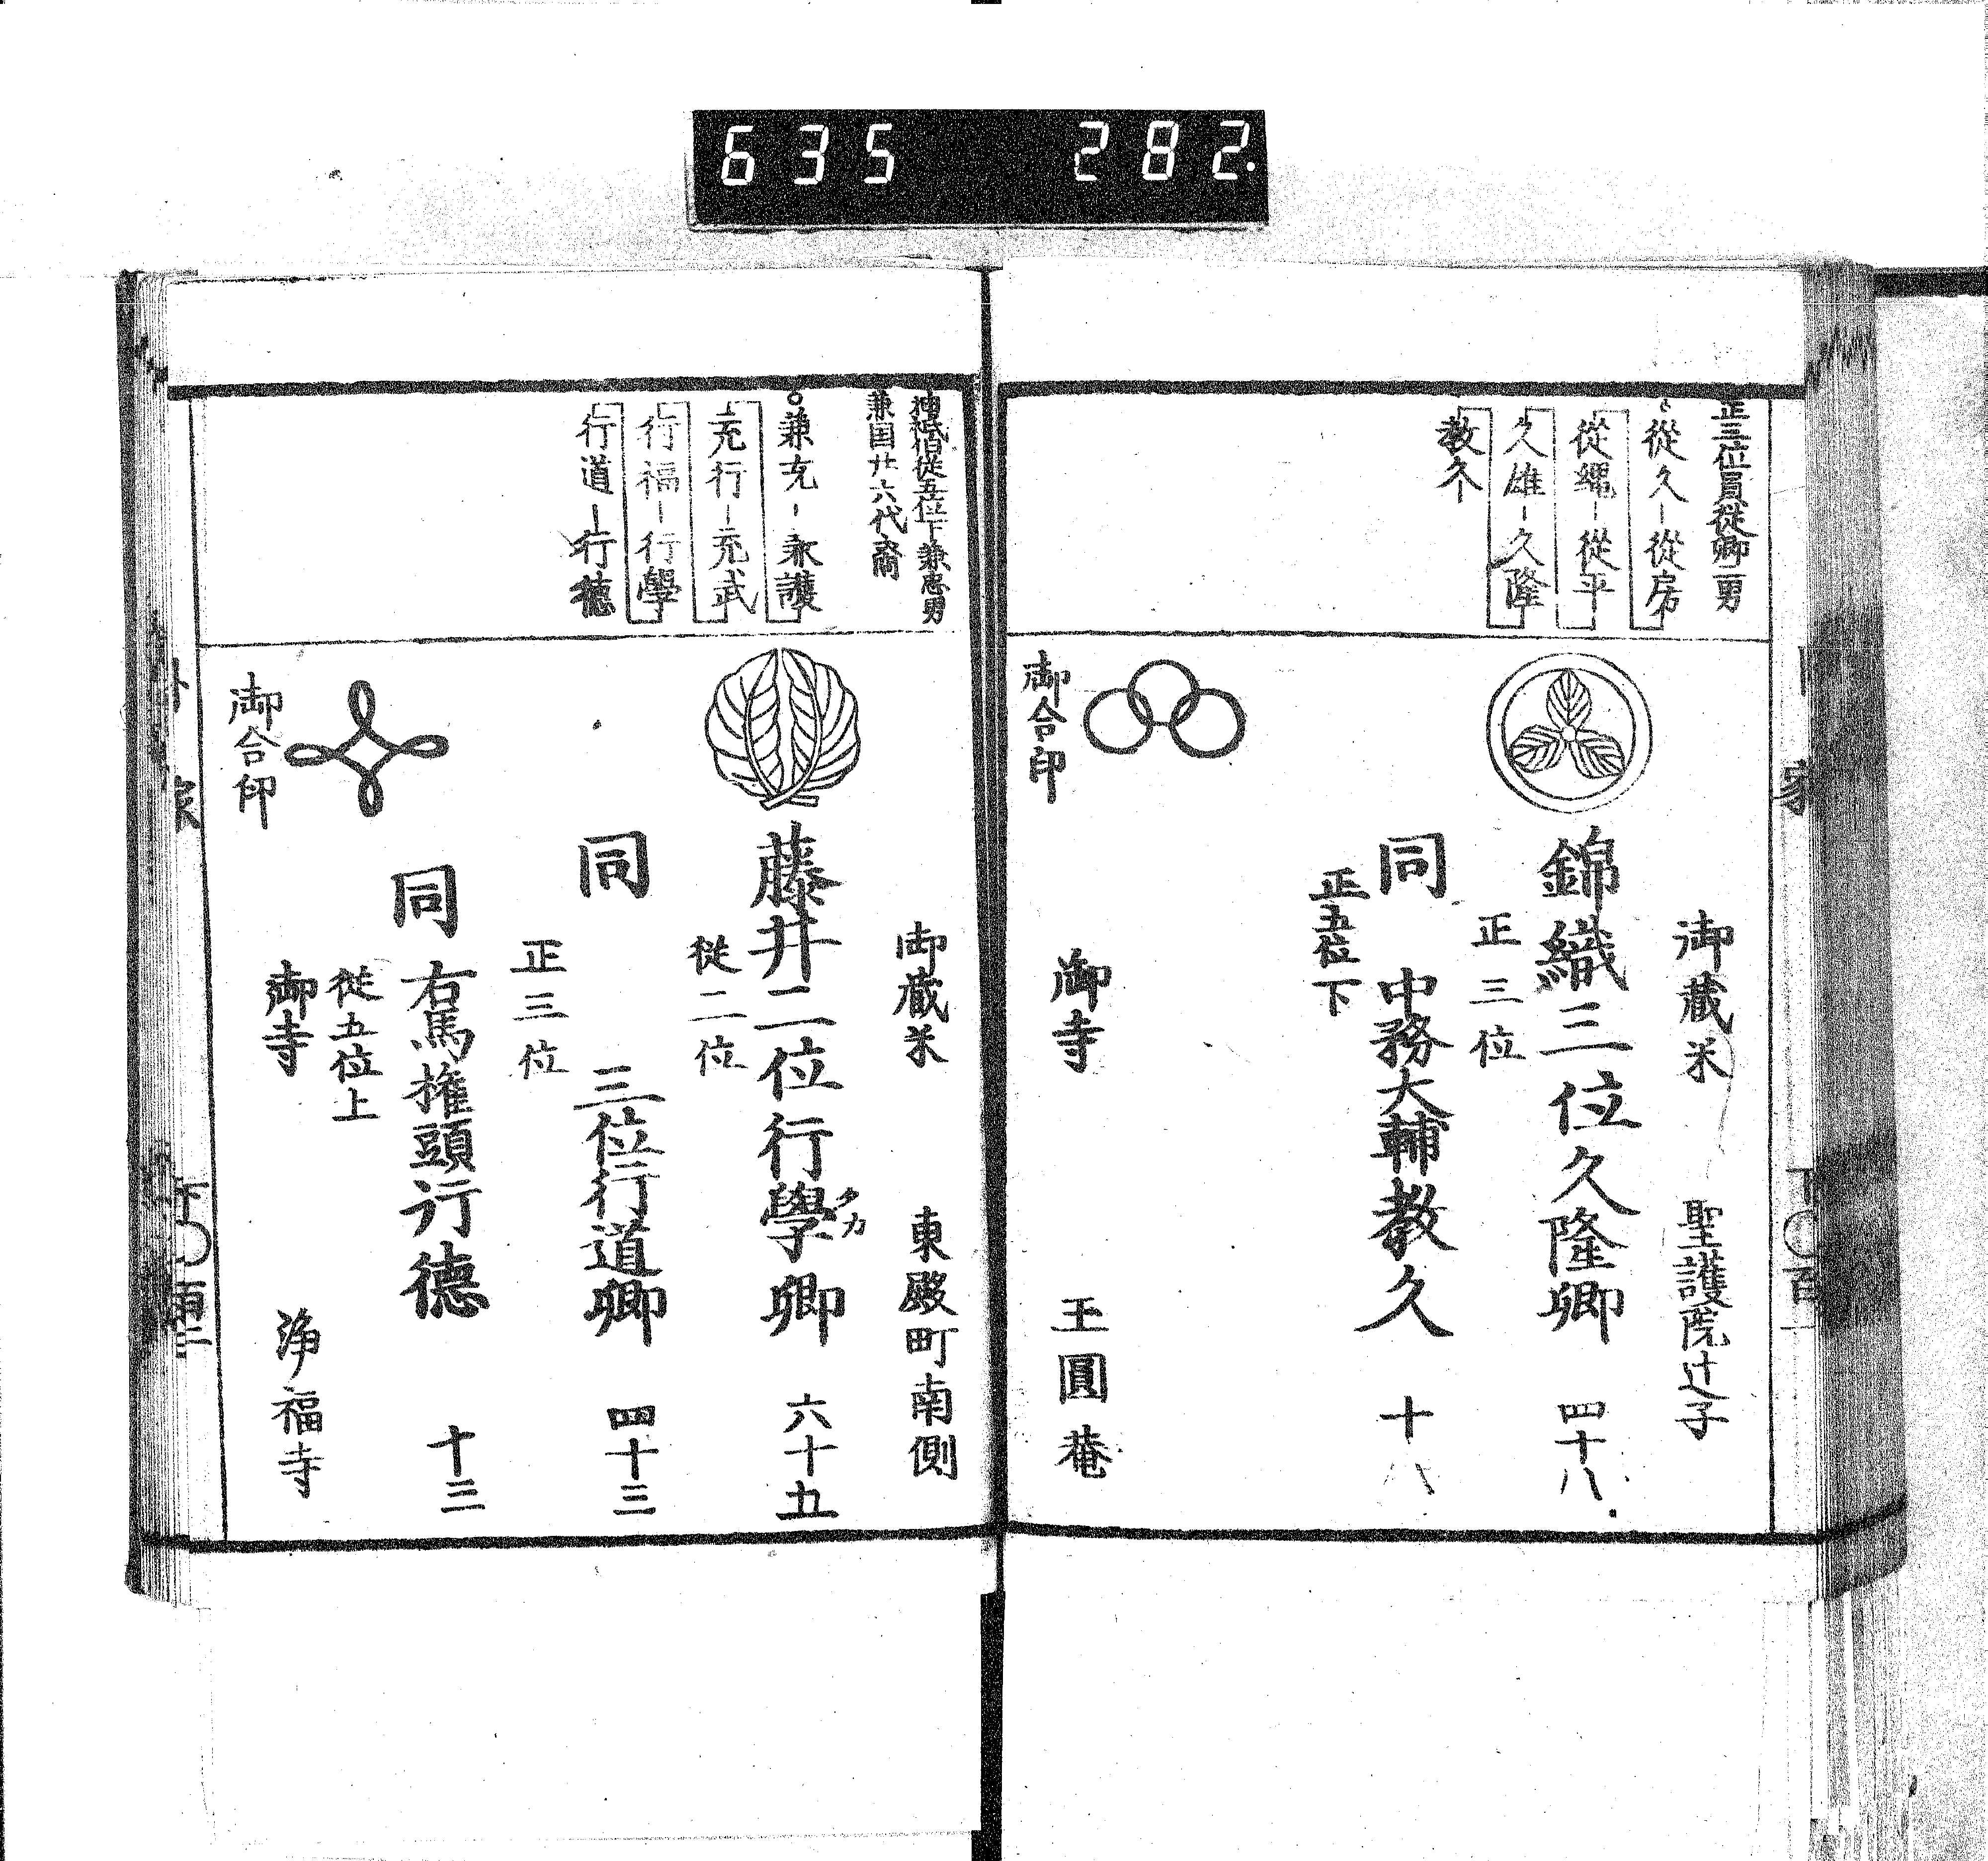 635 282.
正三位員從卿二男
從久-從房
從縄-從平
久雄-久隆
教久
御蔵米 聖護院辻子
錦織三位久隆卿 四十八
正三位
同 中務大輔教久 十八
正五位下
御合印
御寺 玉圓菴
家
下〇百一
神祇伯從五位下兼忠男
兼国廿六代裔
兼充-永護
充行-充武
行福-行學
行道-行徳
御蔵米 東殿町南側
藤井二位行學卿 六十五
タカ
從二位
同 三位行道卿 四十三
正三位
同 右馬権頭行德 十三
從五位上
御合印
御寺 浄福寺